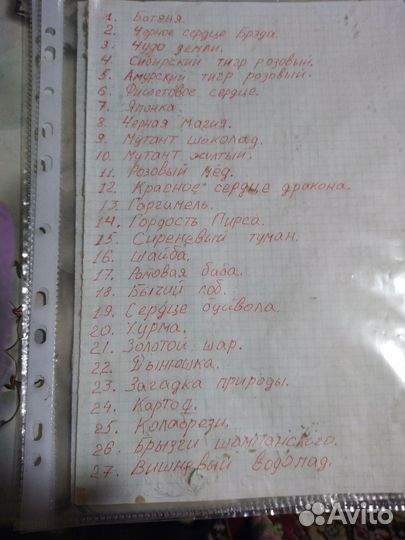 1. Батяня.
2. Черное сердце Брэда.
3. Чудо земли.
4. Сибирский тигр розовый.
5. Амурский тигр розовый.
6. Фиолетовое сердце.
7. Японка.
8. Черная магия.
9. Мутант шоколад.
10. Мутант желтый.
11. Розовый мёд.
12. Красное сердце дракона.
13. Гаргамель.
14. Гордость Пирса.
15. Сиреневый туман.
16. Шайба.
17. Ромовая баба.
18. Бычий лоб.
19. Сердце буйвола.
20. Хурма.
21. Золотой шар.
22. Дынюшка.
23. Загадка природы.
24. Картоф.
25. Колабрези.
26. Брызги шампанского.
27. Вишневый водопад.
Avito